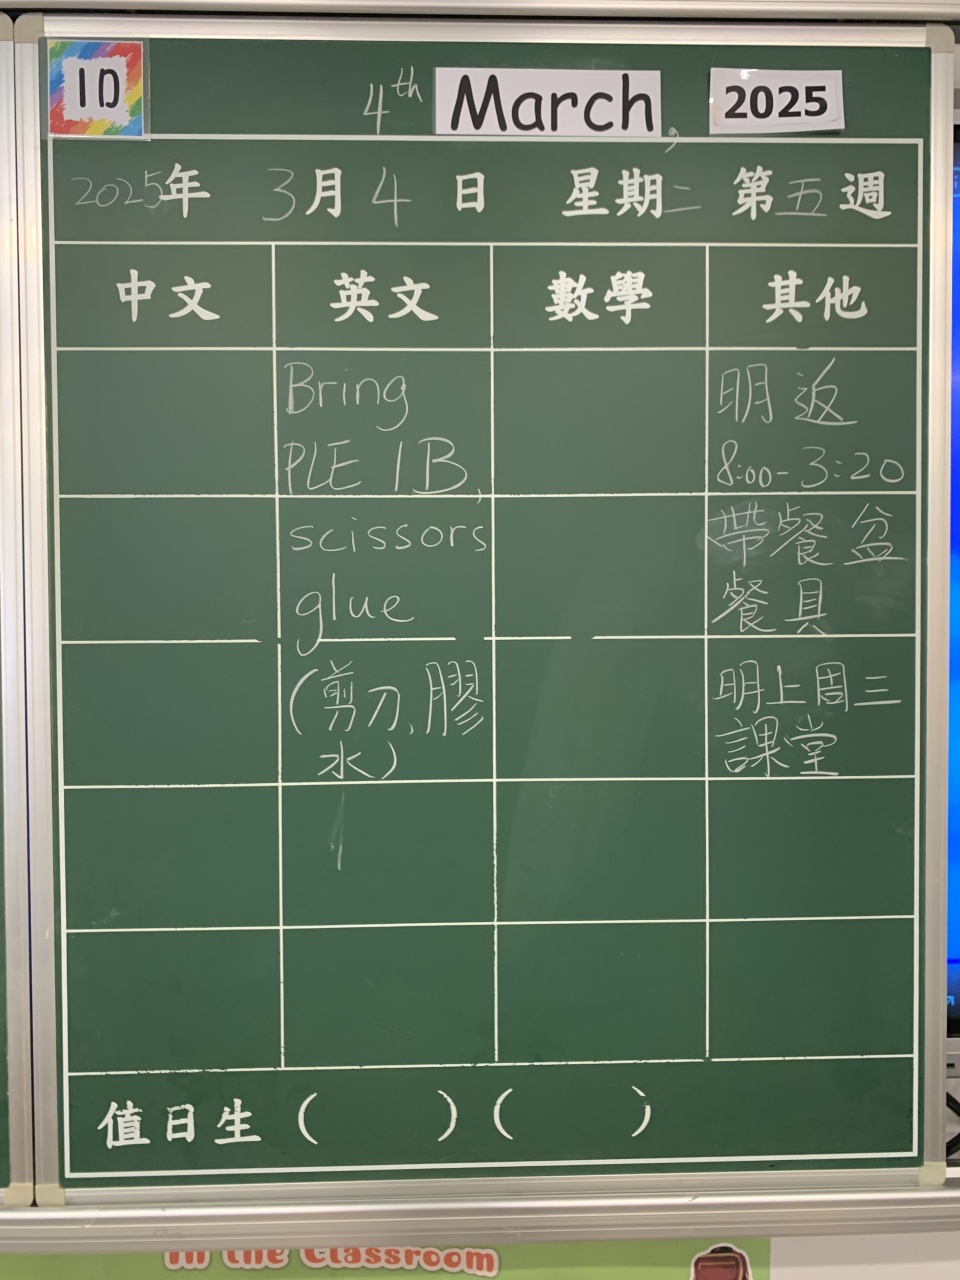 1D
4th March, 2025
2025年 3月4日 星期二 第五週
中文 英文 數學 其他
Bring
PLE 1B,
scissors
glue
(剪刀、膠
水)
明返
8:00-3:20
帶餐盆
餐具
明上周三
課堂
值日生 ( ) ( )
In the Classroom